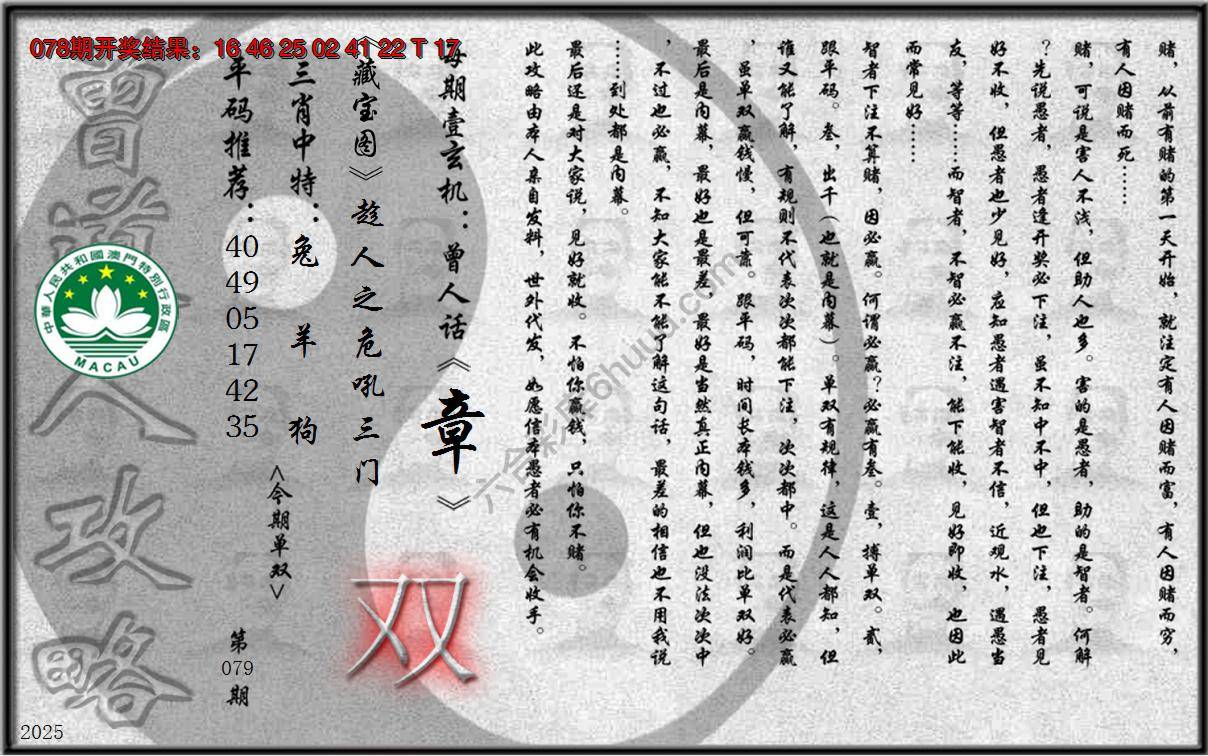 078期开奖结果：16 46 25 02 41 22 T 17
赌，从前有赌的第一天开始，就注定有人因赌而富，有人因赌而穷，
有人因赌而死……
赌，可说是害人不浅，但助人也多。害的是愚者，助的是智者。何解
？先说愚者，愚者逢开奖必下注，虽不知中不中，但也下注，愚者见
好不收，但愚者也少见好，应知愚者遇害智者不信，近观水，遇愚当
友，等等……而智者，不智必赢不注，能下能收，见好即收，也因此
而常见好……
智者下注不算赌，因必赢。何谓必赢？必赢有叁。壹，搏单双。贰，
跟平码。叁，出千（也就是内幕）。单双有规律，这是人人都知，但
谁又能了解，有规则不代表次次都能下注，次次都中。而是代表必赢
，虽单双赢钱慢，但可靠。跟平码，时间长本钱多，利润比单双好。
最后是内幕，最好也是最差，最好是当然真正内幕，但也没法次次中
，不过也必赢，不知大家能不能了解这句话，最差的相信也不用我说
……到处都是内幕。
最后还是对大家说，见好就收。不怕你赢钱，只怕你不赌。
此攻略由本人亲自发料，世外代发，如愿信本愚者必有机会收手。
每期壹玄机：曾人话《章》
《藏宝图》趁人之危吼三门
三肖中特：兔 羊 狗
平码推荐：40 49 05 17 42 35
<今期单双>
双
第079期
曾道人攻略
中華人民共和國澳門特別行政區
MACAU
六合彩库6huuu.com
2025